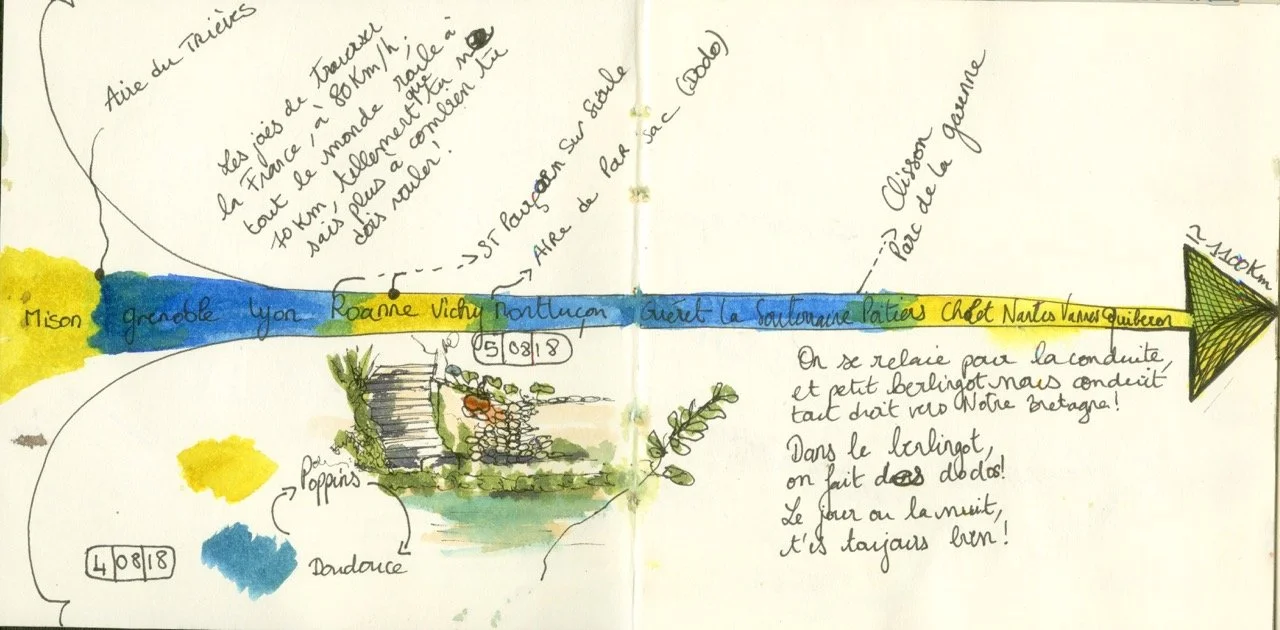 Aire du Trièves
Les joies de traverser
la France, à 80Km/h,
tout le monde roule à
70Km, tellement que tu ne
sais plus à combien tu
dois rouler!
ST Pourçain sur Sioule
AIRE de Par sac (Dodo)
Clisson
Parc de la garenne
≃ 1100Km
Mison grenoble Lyon Roanne Vichy Montluçon Guéret La Souterraine Poitiers Cholet Nantes Vannes quiberon
5/08/18
On se relaie pour la conduite,
et petit berlingot nous conduit
tout droit vers Notre Bretagne!
Dans le berlingot,
on fait des dodos!
Le jour ou la nuit,
t'es toujours bien!
Poppins
Doudouce
4/08/18